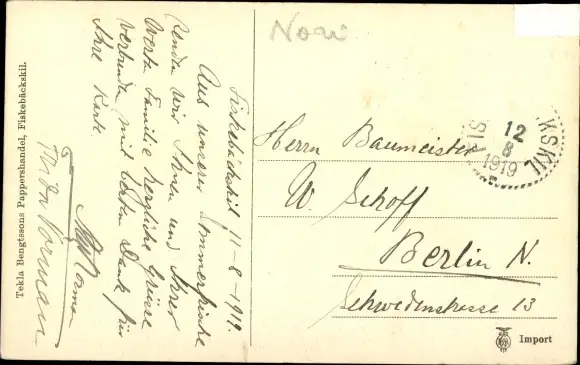 Tekla Bengtssons Pappershandel, Fiskebäckskil.
Fiskebäckskil 11-8-1919.
Aus unserer Sommerfrische
senden wir Ihnen und Ihrer
werten Familie herzliche Grüsse
verbunden mit besten Dank für
Ihre Karte.
Norman
Norman
Herrn Baumeister
W. Schoff
Berlin N.
Schwedenstrasse 13
12
8
1919
KSKIL
Import